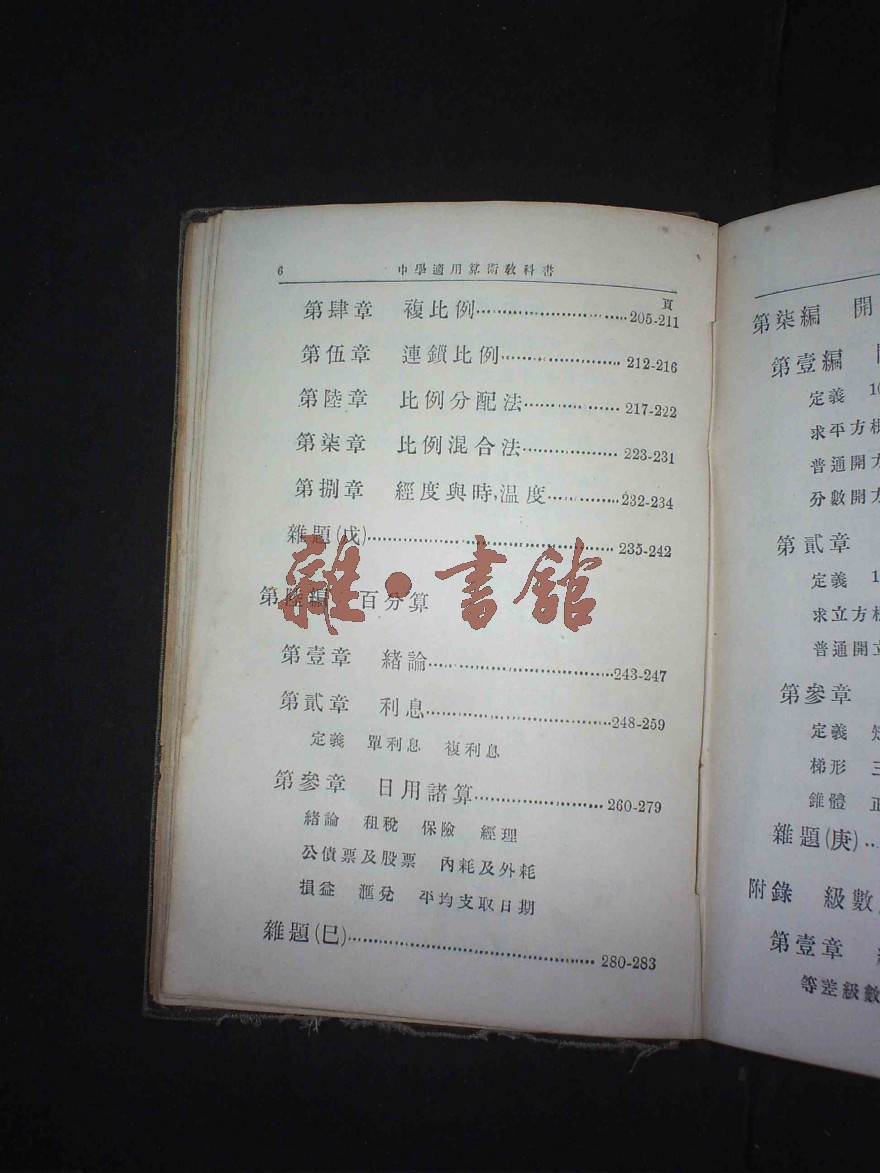 6 中學適用算術教科書
頁
第肆章 複比例 205-211
第伍章 連鎖比例 212-216
第陸章 比例分配法 217-222
第柒章 比例混合法 223-231
第捌章 經度與時,溫度 232-234
雜題(戊) 235-242
第陸編 百分算
雜·書館
第壹章 緒論 243-247
第貳章 利息 248-259
定義 單利息 複利息
第參章 日用諸算 260-279
緒論 租稅 保險 經理
公債票及股票 內耗及外耗
損益 滙兌 平均支取日期
雜題(巳) 280-283
第柒編 開
第壹編
定義 10
求平方根
普通開方
分數開方
第貳章
定義 1
求立方根
普通開立
第參章
定義
梯形 三
錐體 正
雜題(庚)
附錄 級數
第壹章
等差級數